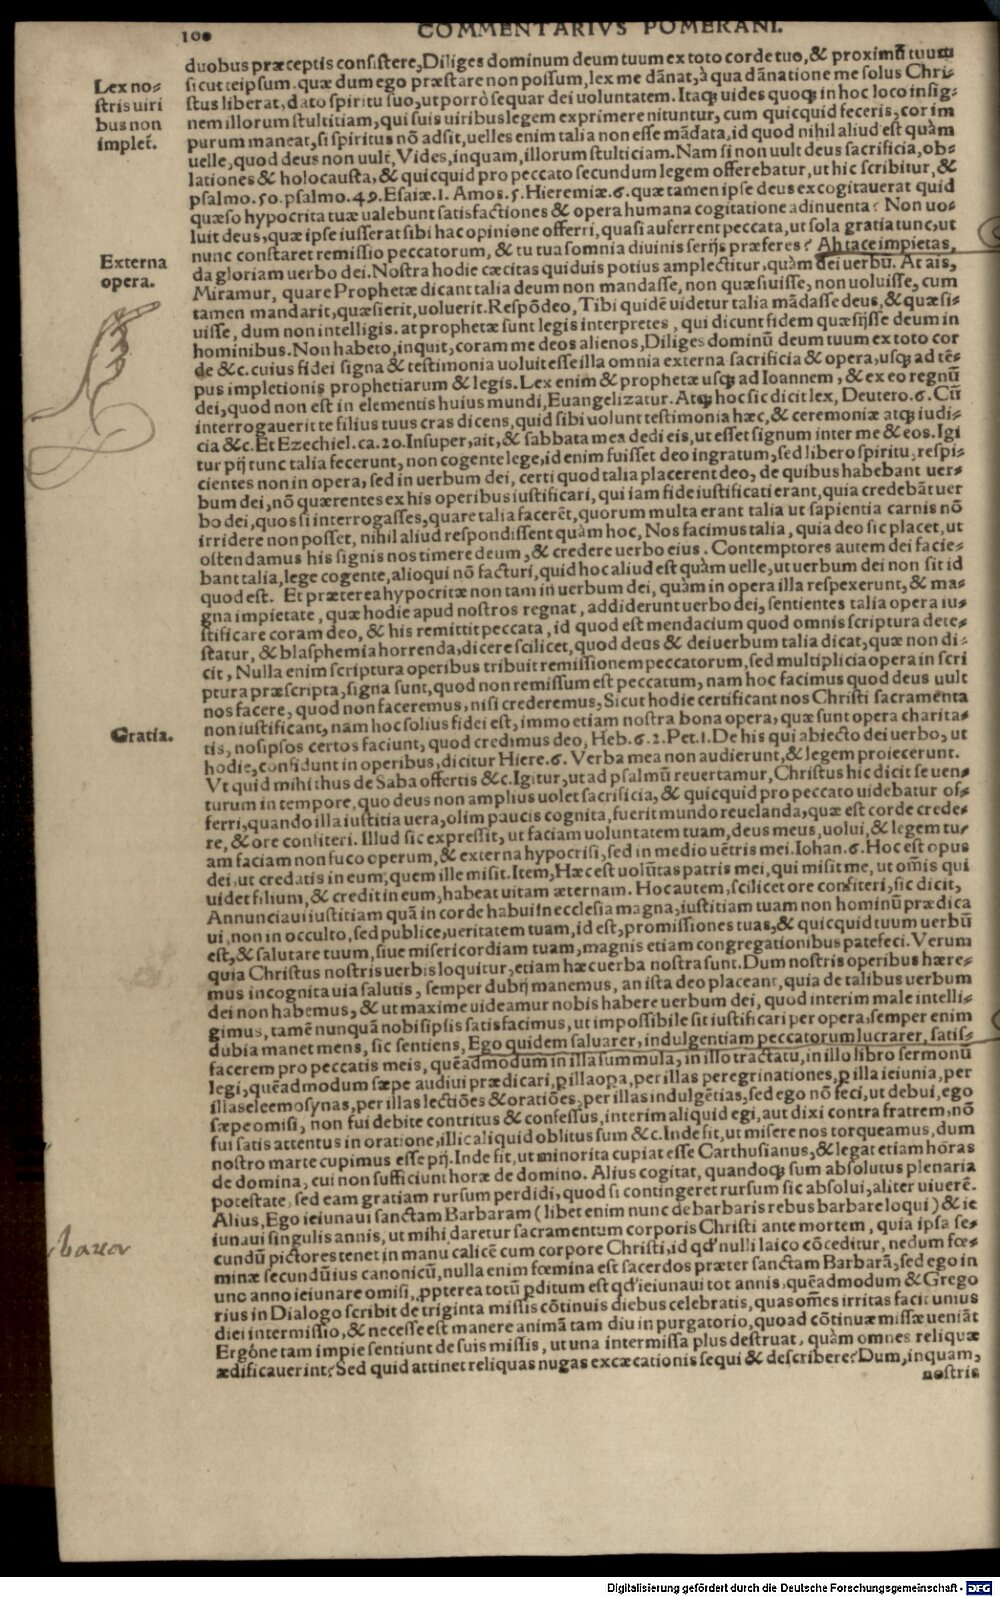 100 COMMENTARIVS POMERANI.
duobus præceptis consistere, Diliges dominum deum tuum ex toto corde tuo, & proximũ tuum
sicut teipsum. quæ dum ego præstare non possum, lex me dãnat, à qua dãnatione me solus Chri-
stus liberat, dato spiritu suo, ut porrò sequar dei uoluntatem. Itaqʒ uides quoqʒ in hoc loco insig-
nem illorum stultitiam, qui suis uiribus legem exprimere nituntur, cum quicquid feceris, cor im
purum maneat, si spiritus nõ adsit, uelles enim talia non esse mãdata, id quod nihil aliud est quàm
uelle, quod deus non uult, Vides, inquam, illorum stulticiam. Nam si non uult deus sacrificia, ob-
lationes & holocausta, & quicquid pro peccato secundum legem offerebatur, ut hic scribitur, &
psalmo. 50. psalmo. 49. Esaiæ. 1. Amos. 5. Hieremiæ. 6. quæ tamen ipse deus excogitauerat quid
quæso hypocrita tuæ ualebunt satisfactiones & opera humana cogitatione adinuenta? Non uo-
luit deus, quæ ipse iusserat sibi hac opinione offerri, quasi auferrent peccata, ut sola gratia tunc, ut
nunc constaret remissio peccatorum, & tu tua somnia diuinis serijs præferes? Ah tace impietas,
da gloriam uerbo dei. Nostra hodie cæcitas quiduis potius amplectitur, quàm dei uerbũ. At ais,
Miramur, quare Prophetæ dicant talia deum non mandasse, non quæsiuisse, non uoluisse, cum
tamen mandarit, quæsierit, uoluerit. Respõdeo, Tibi quidẽ uidetur talia mãdasse deus, & quæsi-
uisse, dum non intelligis. at prophetæ sunt legis interpretes, qui dicunt fidem quæsijsse deum in
hominibus. Non habeto, inquit, coram me deos alienos, Diliges dominũ deum tuum ex toto cor
de &c. cuius fidei signa & testimonia uoluit esse illa omnia externa sacrificia & opera, usqʒ ad tẽ-
pus impletionis prophetiarum & legis. Lex enim & prophetæ usqʒ ad Ioannem, & ex eo regnũ
dei, quod non est in elementis huius mundi, Euangelizatur. Atqʒ hoc sic dicit lex, Deutero. 6. Cũ
interrogauerit te filius tuus cras dicens, quid sibi uolunt testimonia hæc, & ceremoniæ atqʒ iudi-
cia &c. Et Ezechiel. ca. 20. Insuper, ait, & sabbata mea dedi eis, ut esset signum inter me & eos. Igi
tur pij tunc talia fecerunt, non cogente lege, id enim fuisset deo ingratum, sed libero spiritu, respi-
cientes non in opera, sed in uerbum dei, certi quod talia placerent deo, de quibus habebant uer-
bum dei, nõ quærentes ex his operibus iustificari, qui iam fide iustificati erant, quia credebãt uer
bo dei, quos si interrogasses, quare talia facerẽt, quorum multa erant talia ut sapientia carnis nõ
irridere non posset, nihil aliud respondissent quàm hoc, Nos facimus talia, quia deo sic placet, ut
ostendamus his signis nos timere deum, & credere uerbo eius. Contemptores autem dei facie-
bant talia, lege cogente, alioqui nõ facturi, quid hoc aliud est quàm uelle, ut uerbum dei non sit id
quod est. Et præterea hypocritæ non tam in uerbum dei, quàm in opera illa respexerunt, & ma-
gna impietate, quæ hodie apud nostros regnat, addiderunt uerbo dei, sentientes talia opera iu-
stificare coram deo, & his remitti peccata, id quod est mendacium quod omnis scriptura dete-
statur, & blasphemia horrenda, dicere scilicet, quod deus & dei uerbum talia dicat, quæ non di-
cit, Nulla enim scriptura operibus tribuit remissionem peccatorum, sed multiplicia opera in scri
ptura præscripta, signa sunt, quod non remissum est peccatum, nam hoc facimus quod deus uult
nos facere, quod non faceremus, nisi crederemus, Sicut hodie certificant nos Christi sacramenta
non iustificant, nam hoc solius fidei est, immo etiam nostra bona opera, quæ sunt opera charita-
tis, nos ipsos certos faciunt, quod credimus deo, Heb. 6. 2. Pet. 1. De his qui abiecto dei uerbo, ut
hodie, confidunt in operibus, dicitur Hiere. 6. Verba mea non audierunt, & legem proiecerunt.
Vt quid mihi thus de Saba offertis &c. Igitur, ut ad psalmũ reuertamur, Christus hic dicit se uen-
turum in tempore, quo deus non amplius uolet sacrificia, & quicquid pro peccato uidebatur of-
ferri, quando illa iustitia uera, olim paucis cognita, fuerit mundo reuelanda, quæ est corde crede-
re, & ore confiteri. Illud sic expressit, ut faciam uoluntatem tuam, deus meus, uolui, & legem tu-
am faciam non fuco operum, & externa hypocrisi, sed in medio uẽtris mei. Iohan. 6. Hoc est opus
dei, ut credatis in eum, quem ille misit. Item, Hæc est volũtas patris mei, qui misit me, ut om̃is qui
uidet filium, & credit in eum, habeat uitam æternam. Hoc autem, scilicet ore confiteri, sic dicit,
Annunciaui iustitiam quã in corde habui in ecclesia magna, iustitiam tuam non hominũ prædica
ui, non in occulto, sed publice, ueritatem tuam, id est, promissiones tuas, & quicquid tuum uerbũ
est, & salutare tuum, siue misericordiam tuam, magnis etiam congregationibus patefeci. Verum
quia Christus nostris uerbis loquitur, etiam hæc uerba nostra sunt. Dum nostris operibus hære-
mus incognita uia salutis, semper dubij manemus, an ista deo placeant, quia de talibus uerbum
dei non habemus, & ut maxime uideamur nobis habere uerbum dei, quod interim male intelli-
gimus, tamẽ nunquã nobis ipsis satisfacimus, ut impossibile sit iustificari per opera, semper enim
dubia manet mens, sic sentiens, Ego quidem saluarer, indulgentiam peccatorum lucrarer, satis-
facerem pro peccatis meis, quẽadmodum in illa summula, in illo tractatu, in illo libro sermonũ
legi, quẽadmodum sæpe audiui prædicari, ꝑ illa opa, per illas peregrinationes, ꝑ illa ieiunia, per
illas eleemosynas, per illas lectiões & oratiões, per illas indulgẽtias, sed ego nõ feci, ut debui, ego
sæpe omisi, non fui debite contritus & confessus, interim aliquid egi, aut dixi contra fratrem, nõ
fui satis attentus in oratione, illic aliquid oblitus sum &c. Inde fit, ut misere nos torqueamus, dum
nostro marte cupimus esse pij. Inde fit, ut minorita cupiat esse Carthusianus, & legat etiam horas
de domina, cui non sufficiunt horæ de domino. Alius cogitat, quandoqʒ sum absolutus plenaria
potestate, sed eam gratiam rursum perdidi, quod si contingeret rursum sic absolui, aliter uiuerẽ.
Alius, Ego ieiunaui sanctam Barbaram (libet enim nunc de barbaris rebus barbare loqui) & ie
iunaui singulis annis, ut mihi daretur sacramentum corporis Christi ante mortem, quia ipsa se-
cundũ pictores tenet in manu calicẽ cum corpore Christi, id qđ nulli laico cõceditur, nedum fœ-
minæ secundũ ius canonicũ, nulla enim fœmina est sacerdos præter sanctam Barbarã, sed ego in
uno anno ieiunare omisi, ꝓpterea totũ ꝑditum est qđ ieiunaui tot annis, quẽadmodum & Grego
rius in Dialogo scribit de triginta missis cõtinuis diebus celebratis, quas om̃es irritas facit unius
diei intermissio, & necesse est manere animã tam diu in purgatorio, quoad cõtinuæ missæ ueniãt
Ergóne tam impie sentiunt de suis missis, ut una intermissa plus destruat, quàm omnes reliquæ
ædificauerint? Sed quid attinet reliquas nugas excæcationis sequi & describere? Dum, inquam,
nostris
Lex no-
stris uiri
bus non
implet̃.
Externa
opera.
Gratia.
Digitalisierung gefördert durch die Deutsche Forschungsgemeinschaft - DFG